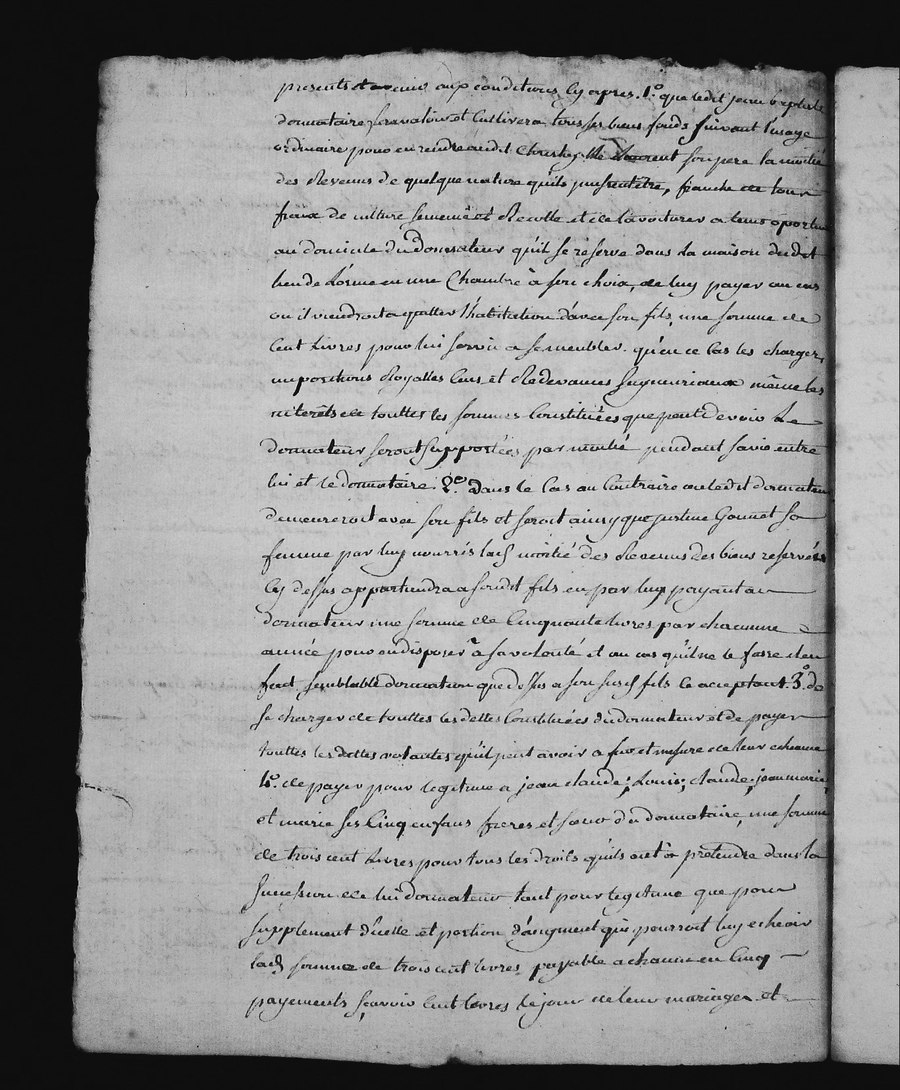 presents et avenir aux conditions cy apres. 1.° que ledit jean baptiste
donnataire fera valoir et cultivera tous ses biens fonds suivant l'usage
ordinaire pour en rendre audit son pere la moitié
des Revenus de quelque nature qu'ils puissent être, franche de tous
fraix de culture semence et Recolte et de la voiturer a tems oportun
au domicile du Donnateur qu'il se reserve dans la maison dudit
lieu de L'orme en une Chambre à son choix, de luy payer au cas
ou il viendroit a quitter l'habitation d'avec son fils, une somme de
Cent Livres pour lui servir a se meubler. qu'en ce cas les charges,
impositions Royalles Cens et Redevances seigneuriaux même les
interêts de touttes les sommes Constituées que peut devoir Le
donnateur seront supportées par moitié pendant sa vie entre
lui et le donnataire. 2.° Dans le Cas au Contraire ou ledit donnateur
demeureroit avec son fils et seroit ainsy que justine Gonnet sa
femme par luy nourris lad. moitié des Revenus des biens reservés
Cy dessus appartiendra a sondit fils en par luy payant au
donnateur une somme de Cinquante livres par chacunne
année pour en disposer à sa volonté et au cas qu'il ne le fasse il en
fait semblable donnation que dessus a son susd. fils ce acceptant. 3.° de
se charger de touttes les dettes Constituées du donnateur et de payer
touttes les dettes volantes qu'il peut avoir a fur et mesure de leur echeance
4.° de payer pour legitime a jean claude, Louis, claude, jean marie,
et marie ses Cinq enfans freres et sœur du donnataire, une somme
de trois cent Livres pour tous les droits qu'ils ont à prétendre dans la
succession de lui donnateur tant pour legitime que pour
supplement d'icelle et portion d'augment qui pourroit luy echeoir
lad. somme de trois cent livres payable a chacun en Cinq
payements sçavoir Cent livres le jour de leur mariage et